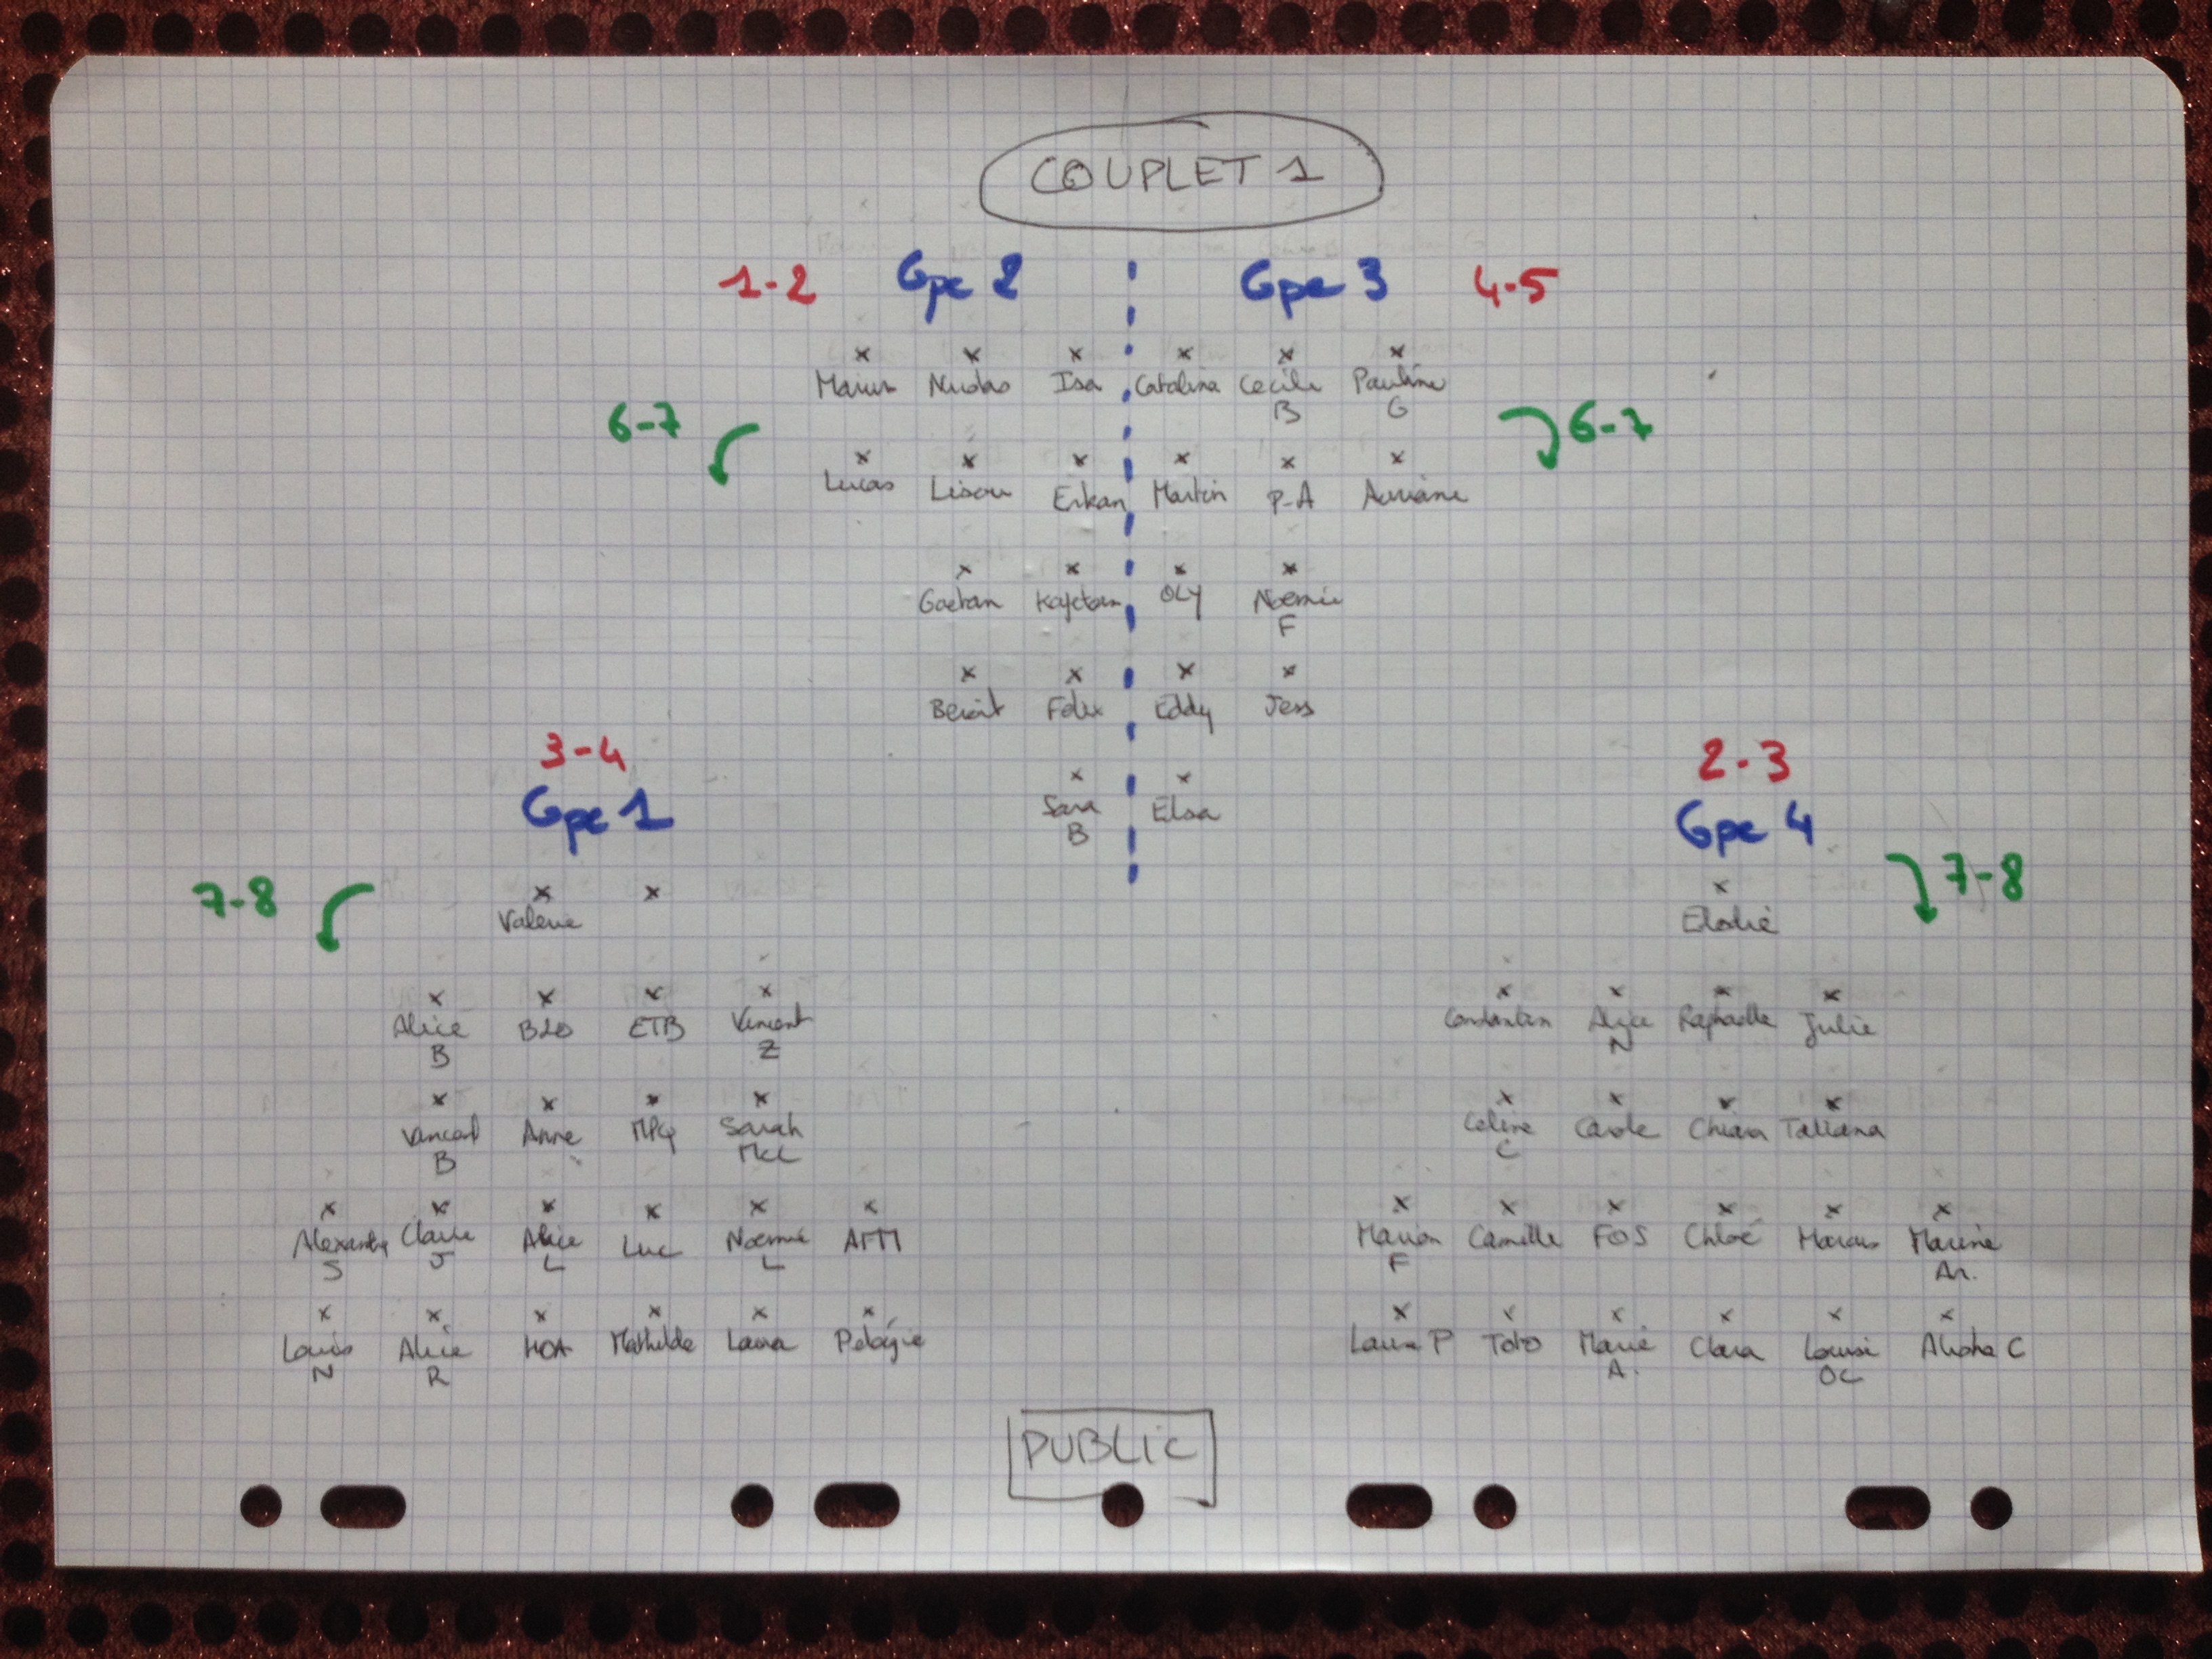 COUPLET 1
1-2 Gpe 2 Gpe 3 4-5
Marius Nicolas Isa Catalina Cécile Pauline
B G
6-7 6-7
Lucas Lisou Erkan Martin P-A Auriane
Gaetan Kajetan OLY Noémie
F
Benoit Felix Eddy Jess
3-4 2-3
Sara Elsa
B
Gpe 1 Gpe 4
7-8 7-8
Valerie Elodie
Alice B20 ETB Vincent Constantin Alice Raphaelle Julie
B Z N
Vincent Anne MPG Sarah Celine Carole Chiara Tatiana
B McL C
Alexandre Claire Alice Luc Noémie AFM Marion Camille FOS Chloé Marcus Marine
S J L L F Ar.
Louis Alice HOA Mathilde Laura Pelagie Laura P Toto Marie Clara Louise C
N R A. OC
PUBLIC